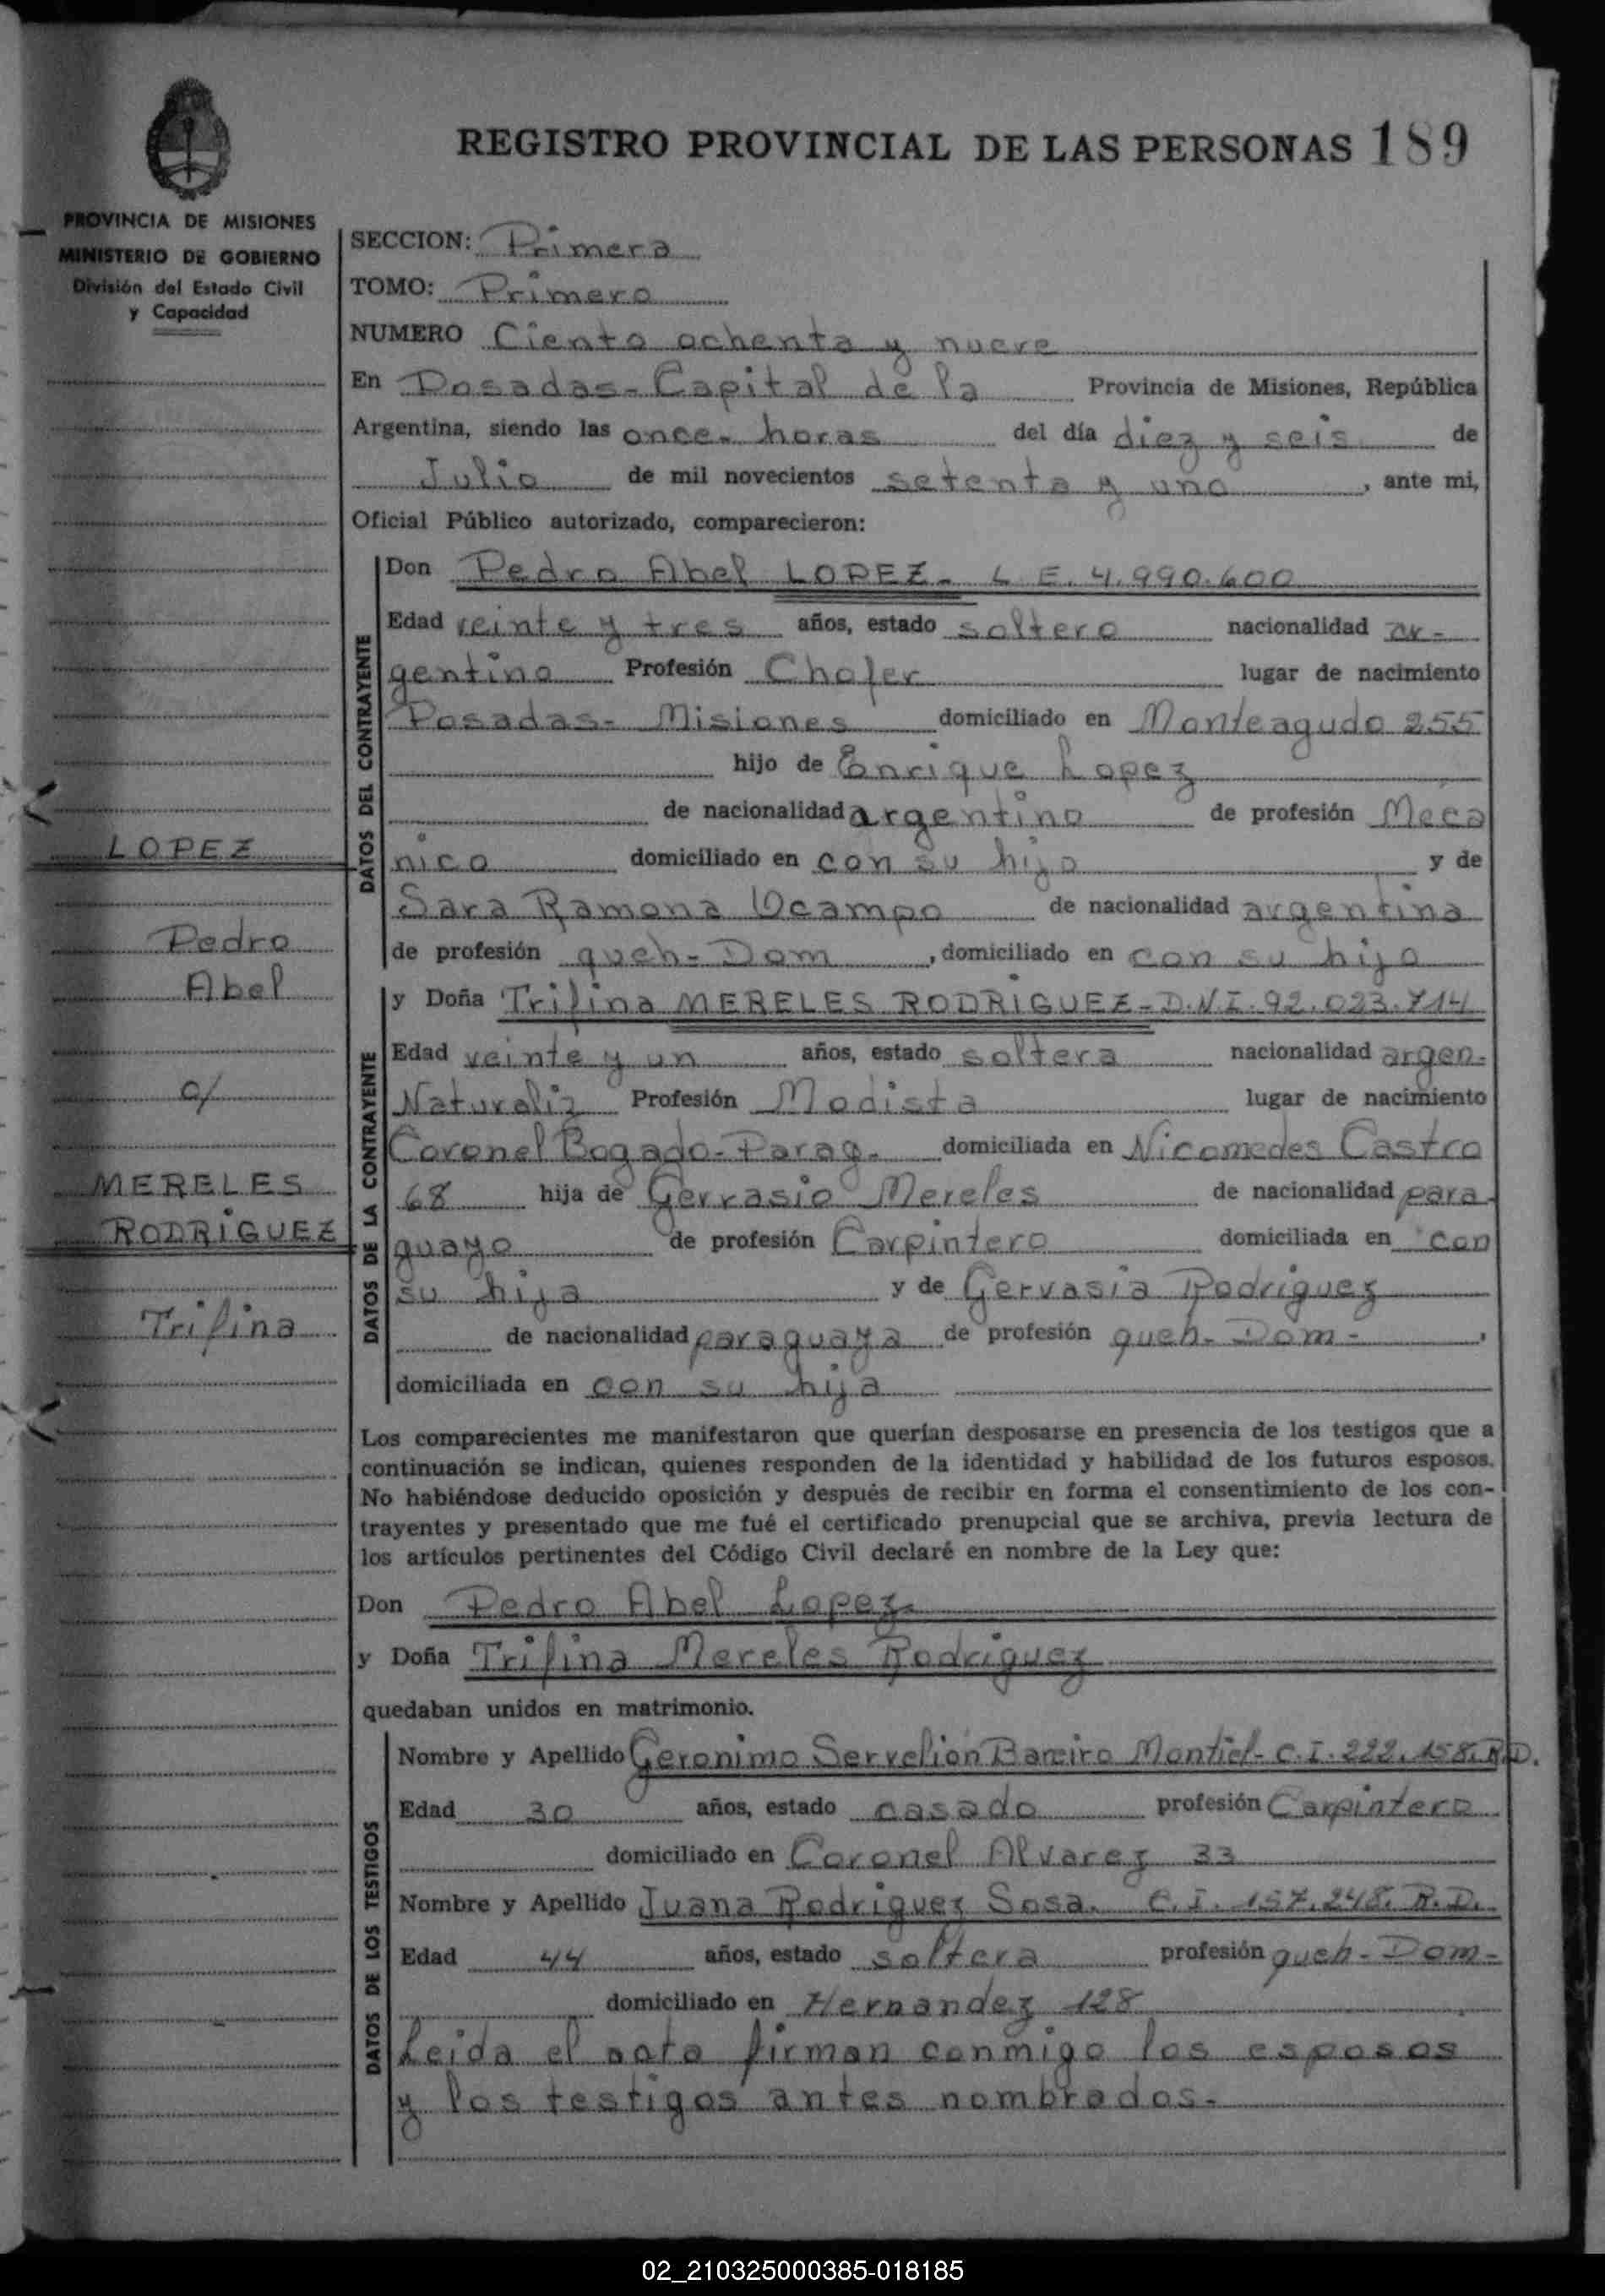 REGISTRO PROVINCIAL DE LAS PERSONAS 189
PROVINCIA DE MISIONES
MINISTERIO DE GOBIERNO
División del Estado Civil
y Capacidad
LOPEZ
Pedro
Abel
c/
MERELES
RODRIGUEZ
Trifina
SECCION: Primera
TOMO: Primero
NUMERO Ciento ochenta y nueve
En Posadas-Capital de la Provincia de Misiones, República
Argentina, siendo las once- horas del día diez y seis de
Julio de mil novecientos setenta y uno, ante mi,
Oficial Público autorizado, comparecieron:
DATOS DEL CONTRAYENTE
Don Pedro Abel LOPEZ- L E. 4.990.600
Edad veinte y tres años, estado soltero nacionalidad ar-
gentino Profesión Chofer lugar de nacimiento
Posadas- Misiones domiciliado en Monteagudo 255
hijo de Enrique Lopez
de nacionalidad argentino de profesión Mecá
nico domiciliado en con su hijo y de
Sara Ramona Ocampo de nacionalidad argentina
de profesión queh- Dom, domiciliado en con su hijo
DATOS DE LA CONTRAYENTE
y Doña Trifina MERELES RODRIGUEZ-D.N.I. 92.023.714
Edad veinte y un años, estado soltera nacionalidad argen-
Naturaliz Profesión Modista lugar de nacimiento
Coronel Bogado-Parag- domiciliada en Nicomedes Castro
68 hija de Gervasio Mereles de nacionalidad para-
guayo de profesión Carpintero domiciliada en con
su hija y de Gervasia Rodriguez
de nacionalidad paraguaya de profesión queh- Dom-,
domiciliada en con su hija
Los comparecientes me manifestaron que querían desposarse en presencia de los testigos que a
continuación se indican, quienes responden de la identidad y habilidad de los futuros esposos.
No habiéndose deducido oposición y después de recibir en forma el consentimiento de los con-
trayentes y presentado que me fué el certificado prenupcial que se archiva, previa lectura de
los artículos pertinentes del Código Civil declaré en nombre de la Ley que:
Don Pedro Abel Lopez-
y Doña Trifina Mereles Rodriguez
quedaban unidos en matrimonio.
DATOS DE LOS TESTIGOS
Nombre y Apellido Geronimo Servelión Bareiro Montiel- C.I. 222.158. R.D.
Edad 30 años, estado casado profesión Carpintero
domiciliado en Coronel Alvarez 33
Nombre y Apellido Juana Rodriguez Sosa. C.I. 157.248. R.D.
Edad 44 años, estado soltera profesión queh-Dom-
domiciliado en Hernandez 128
Leida el acta firman conmigo los esposos
y los testigos antes nombrados-
02_210325000385-018185